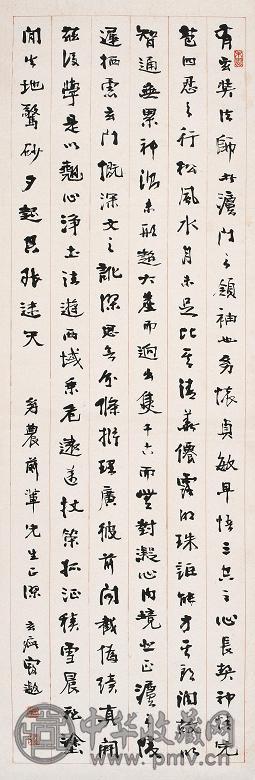 有玄奘法師者灋門之領袖也幼懷貞敏早悟三空之心長契神情先
苞四忍之行松風水月未足比其清華僊露明珠詎能方其朗潤故以
智通無累神測未形超六塵而迥出隻千古而無對凝心內境悲正灋之陵
遲栖慮玄門慨深文之訛謬思欲分條析理廣彼前聞截偽續真開
茲後學是以翹心淨土法遊西域乘危遠邁杖策孤征積雪晨飛塗
間失地驚砂夕起空外迷天
農前輩先生正
中华收藏网
www.sc788.com